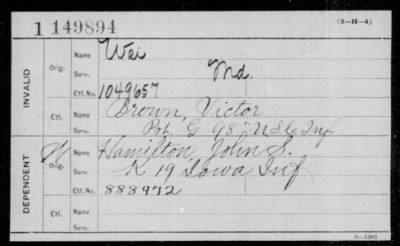 1 149894 (3—H—4)
INVALID
Orig. Name
Serv. Md.
Ctf. No. 1049657
Ctf. Name Brown, Victor
Serv. G 98" U.S.C. Inf
DEPENDENT
W Orig. Name Hamilton, John S.
Serv. K 19 Iowa Inf
Ctf. No. 888972
Ctf. Name
Serv.